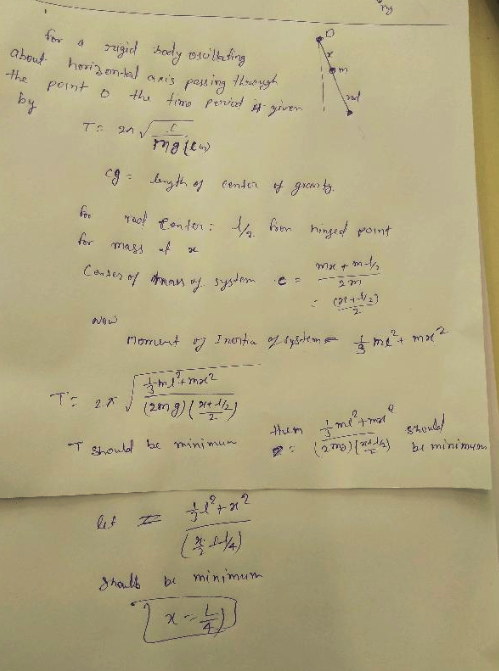 ng
for a rigid body oscillating
about horizontal axis passing through
the point O the time period is given
by
O
x
m
rod
T = 2π √ I / mg(lcg)
cg = length of center of gravity.
for rod center = l/2 from hinged point
for mass at x
Center of mass of system c = mx + m l/2 / 2m
= (x + l/2) / 2
Now
Moment of Inertia of system = 1/3 ml² + mx²
T = 2π √ 1/3 ml² + mx² / (2mg) (x + l/2 / 2)
T should be minimum then 1/3 ml² + mx² / (2mg) (x + l/2 / 2) should be minimum
let z = 1/3 l² + x² / (x/2 + l/4)
should be minimum
x = L/4